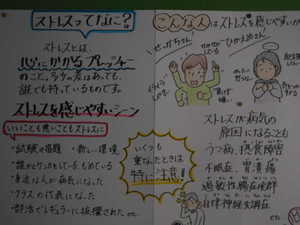 ストレスってなに？
ストレスとは、
心にかかるプレッシャー
のこと。多少の差はあっても、
誰でも持っているものです。
ストレスを感じやすいシーン
いいことも悪いこともストレスに
・試験や宿題 ・新しい環境
・誰かとケンカもしている、もめている
・身近な人が病気になった
・クラスの代表になった
・部活でレギュラーに抜擢された etc
いくつも
重なったときは
特に注意！
こんな人はストレスを感じやすい
せっかちさん
ひかえめさん
イライラ
ストレスが病気の
原因になることも
うつ病、摂食障害
不眠症、胃潰瘍
過敏性腸症候群
自律神経失調症